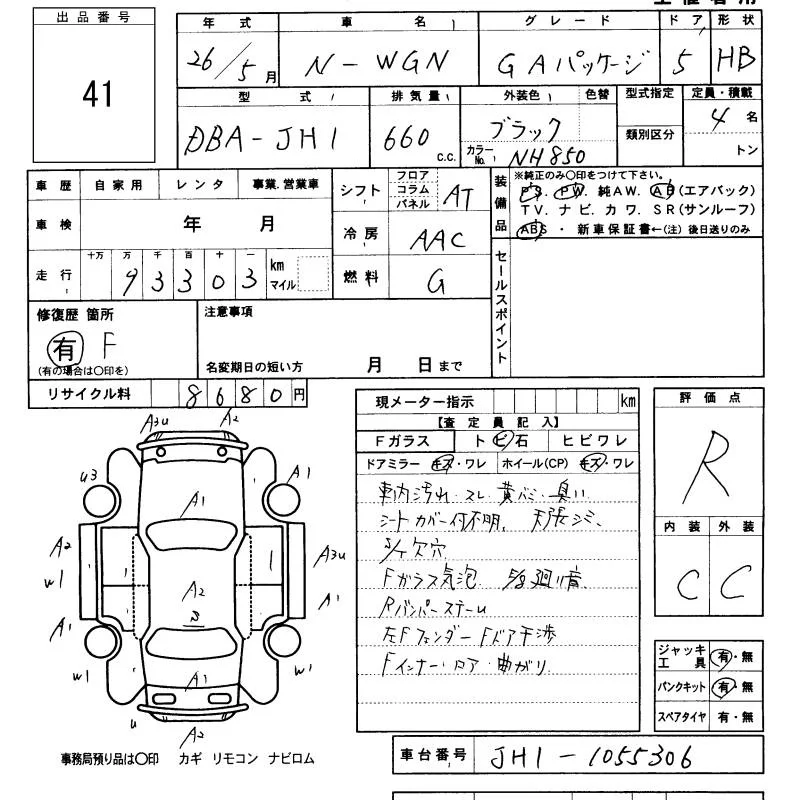 出品番号
41
年式 車名 グレード ドア 形状
26/5月 N-WGN G Aパッケージ 5 HB
型式 排気量 外装色 色替 型式指定 定員・積載
DBA-JH1 660 c.c. ブラック カラーNo. NH850 類別区分 4名 トン
車歴 自家用 レンタ 事業.営業車
車検 年 月
十万 万 千 百 十 一
走行 9 3 3 0 3 km マイル
シフト フロア コラム パネル AT
冷房 AAC
燃料 G
装備品
※純正のみ〇印をつけて下さい。
P S. P W. 純AW. A B(エアバック)
TV. ナビ. カワ. SR(サンルーフ)
ABS ・ 新車保証書←(注) 後日送りのみ
セールスポイント
修復歴 箇所
有 F
(有の場合は〇印を)
注意事項
名変期日の短い方 月 日まで
リサイクル料 8 6 8 0 円
現メーター指示 km
【査定員記入】
Fガラス トビ石 ヒビワレ
ドアミラー キズ・ワレ ホイール(CP) キズ・ワレ
車内汚れ・スレ 黄バミ・臭い
シートカバー付不明. 天張シミ.
欠穴
Fガラス気泡 廻り音
Rバンパースチーム
左Fフェンダー Fドア干渉
Fインナー・ロア・曲がり
評価点
R
内装 外装
C C
ジャッキ工具 有・無
パンクキット 有・無
スペアタイヤ 有・無
A3u A2
u3 A1 A1
A2 A3u
w1 A2 A1
A1
w1 A1 w1
u A2
事務局預り品は〇印 カギ リモコン ナビロム
車台番号 JH1-1055306